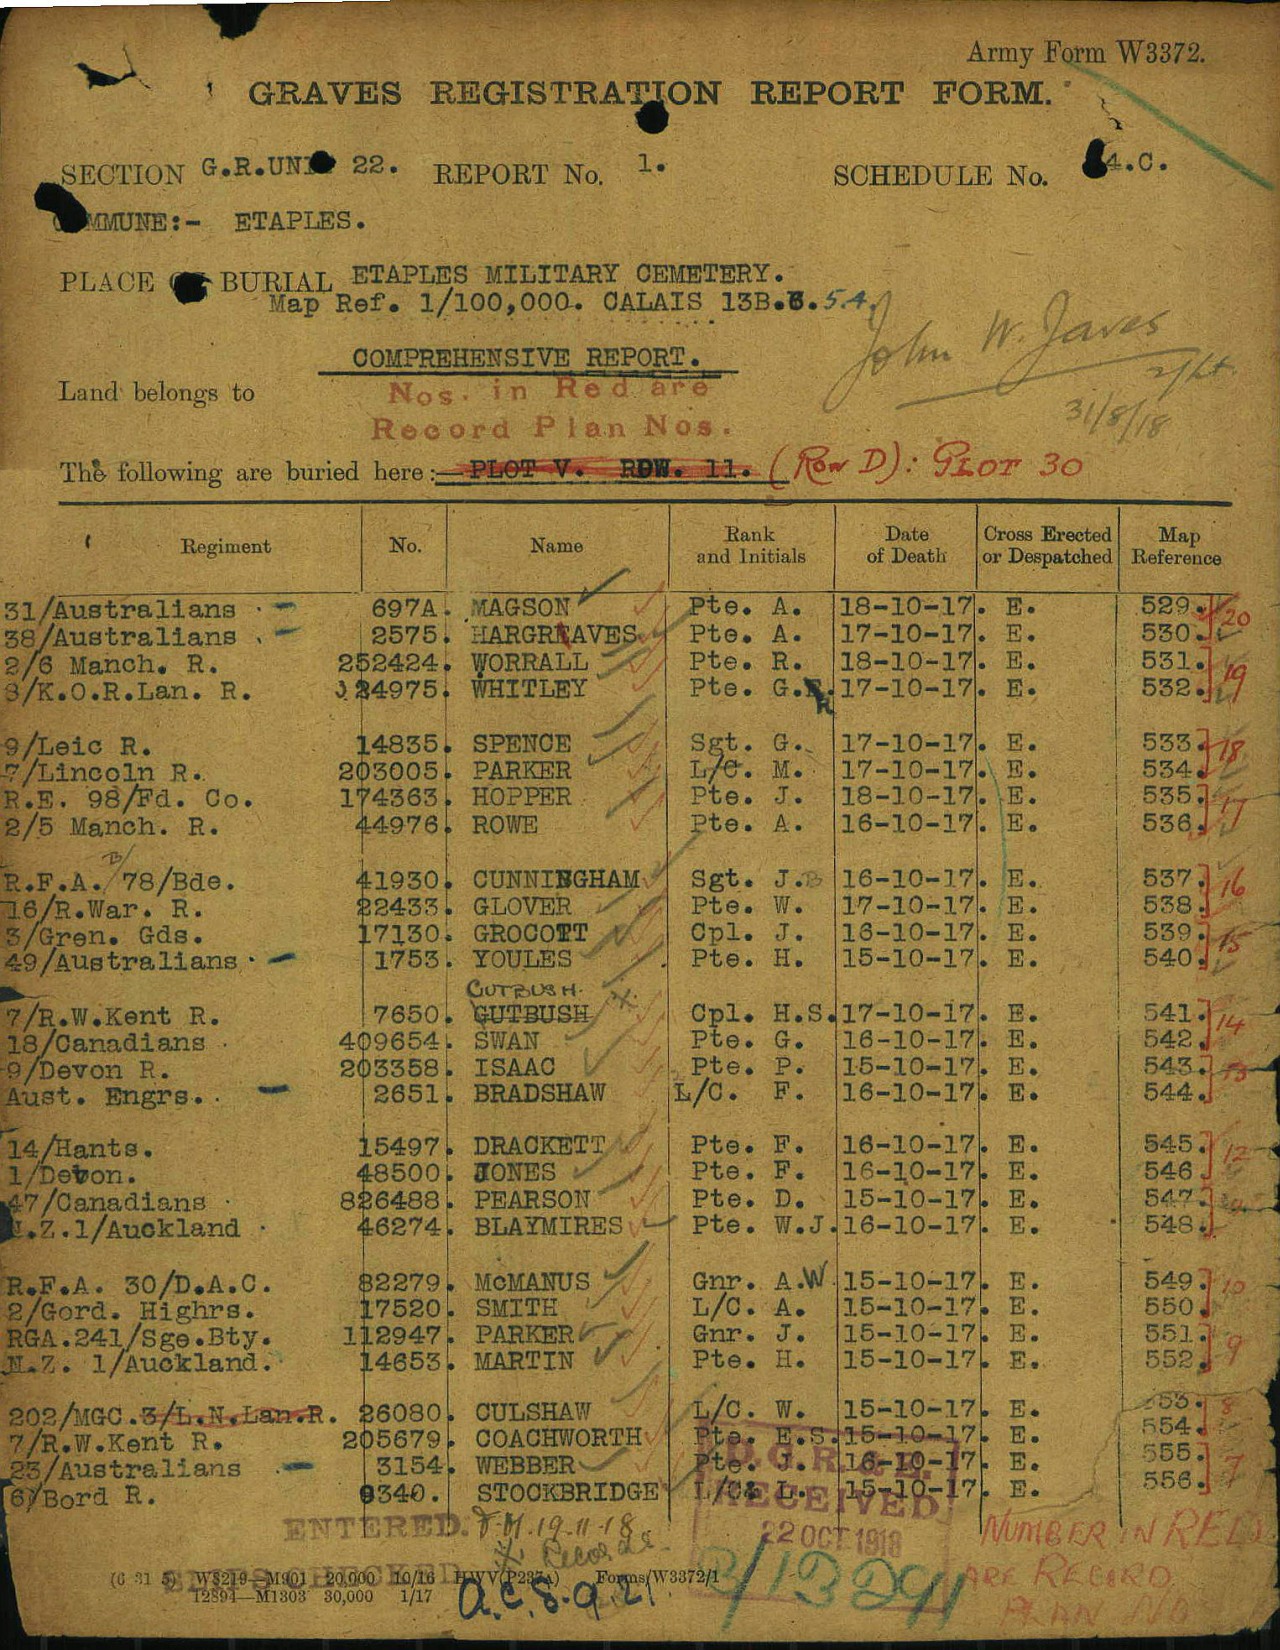 Army Form W3372.
GRAVES REGISTRATION REPORT FORM.
SECTION G.R.UNI 22. REPORT No. 1. SCHEDULE No. 4.C.
MMUNE:- ETAPLES.
PLACE BURIAL ETAPLES MILITARY CEMETERY.
Map Ref. 1/100,000. CALAIS 13B.6.5.4.
John W. Javes
31/8/18
COMPREHENSIVE REPORT.
Land belongs to
Nos. in Red are
Record Plan Nos.
The following are buried here:— PLOT V. ROW. 11. (Row D): PLOT 30
Regiment No. Name Rank and Initials Date of Death Cross Erected or Despatched Map Reference
31/Australians 697A. MAGSON Pte. A. 18-10-17. E. 529. 20
38/Australians 2575. HARGREAVES. Pte. A. 17-10-17. E. 530.
2/6 Manch. R. 252424. WORRALL Pte. R. 18-10-17. E. 531. 19
8/K.O.R.Lan. R. 24975. WHITLEY Pte. G. R 17-10-17. E. 532.
9/Leic R. 14835. SPENCE Sgt. G. 17-10-17. E. 533. 18
7/Lincoln R. 203005. PARKER L/C. M. 17-10-17. E. 534.
R.E. 98/Fd. Co. 174363. HOPPER Pte. J. 18-10-17. E. 535. 17
2/5 Manch. R. 44976. ROWE Pte. A. 16-10-17. E. 536.
R.F.A. B/ 78/Bde. 41930. CUNNINGHAM Sgt. J.B 16-10-17. E. 537. 16
16/R.War. R. 22433. GLOVER Pte. W. 17-10-17. E. 538.
3/Gren. Gds. 17130. GROCOTT Cpl. J. 16-10-17. E. 539. 15
49/Australians 1753. YOULES Pte. H. 15-10-17. E. 540.
CUTBUSH.
7/R.W.Kent R. 7650. GUTBUSH Cpl. H.S. 17-10-17. E. 541. 14
18/Canadians 409654. SWAN Pte. G. 16-10-17. E. 542.
9/Devon R. 203358. ISAAC Pte. P. 15-10-17. E. 543. 13
Aust. Engrs. 2651. BRADSHAW L/C. F. 16-10-17. E. 544.
14/Hants. 15497. DRACKETT Pte. F. 16-10-17. E. 545. 12
1/Devon. 48500. JONES Pte. F. 16-10-17. E. 546.
47/Canadians 826488. PEARSON Pte. D. 15-10-17. E. 547.
N.Z.1/Auckland 46274. BLAYMIRES Pte. W.J. 16-10-17. E. 548.
R.F.A. 30/D.A.C. 82279. McMANUS Gnr. A.W 15-10-17. E. 549. 10
2/Gord. Highrs. 17520. SMITH L/C. A. 15-10-17. E. 550.
RGA.241/Sge.Bty. 112947. PARKER Gnr. J. 15-10-17. E. 551. 9
N.Z. 1/Auckland. 14653. MARTIN Pte. H. 15-10-17. E. 552.
202/MGC. 3/L.N.Lan.R. 26080. CULSHAW L/C. W. 15-10-17. E. 553. 8
7/R.W.Kent R. 205679. COACHWORTH Pte. E.S. 15-10-17. E. 554.
23/Australians 3154. WEBBER Pte. J. 16-10-17. E. 555. 7
6/Bord R. 9340. STOCKBRIDGE L/C. L. 15-10-17. E. 556.
ENTERED. 19-11-18
D.G.R. & E.
RECEIVED
22 OCT 1918
NUMBER IN RED
ARE RECORD
PLAN NO
(6 31 5) W5219—M901 20,000 10/16 HWV(P237A) Forms/W3372/1
12894—M1303 30,000 1/17
CHECKED